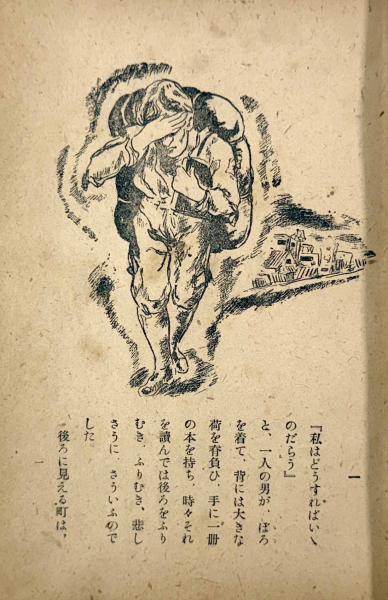 一
『私はどうすればいゝ
のだらう』
と、一人の男が、ぼろ
を着て、背には大きな
荷を脊負ひ、手に一册
の本を持ち、時々それ
を讀んでは後ろをふり
むき、ふりむき、悲し
さうに、さういふので
した。
後ろに見える町は、
一